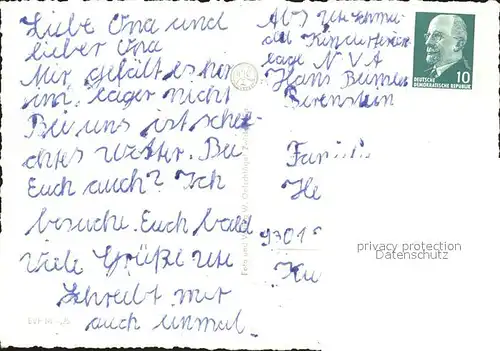 Liebe Oma und
lieber Opa
Mir gefält es hir
im lager nicht
Bei uns ist schle-
chtes Wetter. Bei
Euch auch? Ich
besuche Euch bald
Viele Grüße Ute
Schreibt mir
auch einmal.
Abs Ute Schmu-
del Kinderferien
lage N V A
Hans Beimler
Berenstein
DEUTSCHE
DEMOKRATISCHE REPUBLIK
10
Fami
He
9301
privacy protection
Datenschutz